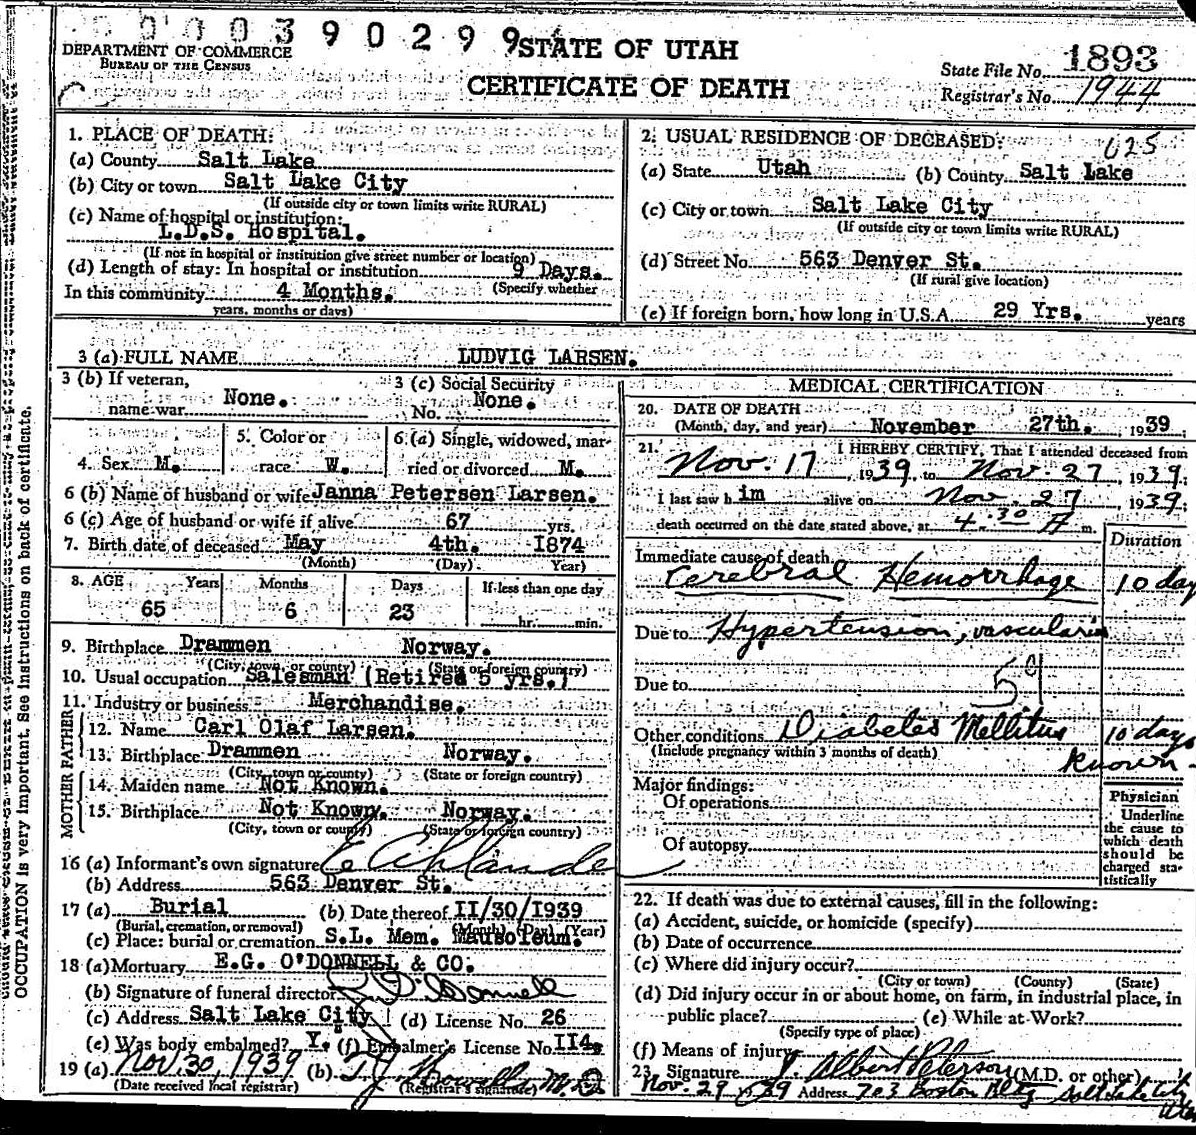 0 0 0 3 9 0 2 9 9
DEPARTMENT OF COMMERCE
BUREAU OF THE CENSUS
STATE OF UTAH
CERTIFICATE OF DEATH
State File No. 1893
Registrar's No. 1944
1. PLACE OF DEATH:
(a) County Salt Lake
(b) City or town Salt Lake City
(If outside city or town limits write RURAL)
(c) Name of hospital or institution:
L.D.S. Hospital.
(If not in hospital or institution give street number or location)
(d) Length of stay: In hospital or institution 9 Days.
(Specify whether
In this community 4 Months.
years, months or days)
2. USUAL RESIDENCE OF DECEASED: 625
(a) State Utah (b) County Salt Lake
(c) City or town Salt Lake City
(If outside city or town limits write RURAL)
(d) Street No. 563 Denver St.
(If rural give location)
(e) If foreign born, how long in U.S.A. 29 Yrs. years
3 (a) FULL NAME LUDVIG LARSEN.
3 (b) If veteran, name war None.
3 (c) Social Security No. None.
4. Sex M. 5. Color or race W. 6 (a) Single, widowed, married or divorced M.
6 (b) Name of husband or wife Janna Petersen Larsen.
6 (c) Age of husband or wife if alive 67 yrs.
7. Birth date of deceased May 4th. 1874
(Month) (Day) Year)
8. AGE Years Months Days If less than one day
65 6 23 hr. min.
9. Birthplace Drammen Norway.
(City, town, or county) (State or foreign country)
10. Usual occupation Salesman (Retired 5 yrs.)
11. Industry or business Merchandise.
FATHER
12. Name Carl Olaf Larsen.
13. Birthplace Drammen Norway.
(City, town or county) (State or foreign country)
MOTHER
14. Maiden name Not Known.
15. Birthplace Not Known. Norway.
(City, town or county) (State or foreign country)
16 (a) Informant's own signature E
(b) Address 563 Denver St.
17 (a) Burial (b) Date thereof II/30/1939
(Burial, cremation, or removal) (Month) (Day) (Year)
(c) Place: burial or cremation S.L. Mem. Mausoleum.
18 (a) Mortuary E.G. O'DONNELL & CO.
(b) Signature of funeral director O'Donnell
(c) Address Salt Lake City (d) License No. 26
(e) Was body embalmed? Y. (f) Embalmer's License No. II4.
19 (a) Nov. 30, 1939 (b) M.D.
(Date received local registrar) (Registrar's signature)
MEDICAL CERTIFICATION
20. DATE OF DEATH
(Month, day, and year) November 27th. 1939
21. I HEREBY CERTIFY, That I attended deceased from
Nov. 17, 1939, to Nov. 27, 1939.
I last saw him alive on Nov. 27 1939;
death occurred on the date stated above, at 4:30 A m.
Duration
Immediate cause of death
Cerebral Hemorrhage 10 day
Due to Hypertension, vascular
Due to 59
Other conditions Diabetes Mellitus 10 days
(Include pregnancy within 3 months of death) known
Major findings:
Of operations
Of autopsy
Physician
Underline
the cause to
which death
should be
charged sta-
tistically
22. If death was due to external causes, fill in the following:
(a) Accident, suicide, or homicide (specify)
(b) Date of occurrence
(c) Where did injury occur?
(City or town) (County) (State)
(d) Did injury occur in or about home, on farm, in industrial place, in
public place? (e) While at Work?
(Specify type of place)
(f) Means of injury
23. Signature J. Albert Peterson (M.D. or other)
Nov. 29 - 39 Address 703 Boston Bldg Salt Lake City
Utah
OCCUPATION is very important. See instructions on back of certificate.